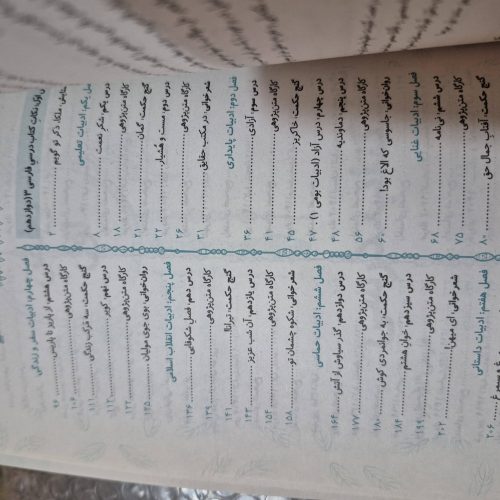 کتاب درسی فارسی ۳ (دوازدهم)
ستایش: ملکا، ذکر تو گویم ۲
فصل یکم: ادبیات تعلیمی
درس یکم: شکر نعمت ۸
کارگاه متن‌پژوهی ۱۸
گنج حکمت: گمان ۲۱
درس دوم: مست و هشیار ۲۲
کارگاه متن‌پژوهی ۲۶
شعرخوانی: در مکتب حقایق ۳۱
فصل دوم: ادبیات پایداری
درس سوم: آزادی ۳۶
کارگاه متن‌پژوهی ۴۱
گنج حکمت: خاکریز ۴۵
درس چهارم: درس آزاد (ادبیات بومی ۱) ۴۷
درس پنجم: دماوندیه ۴۸
کارگاه متن‌پژوهی ۵۶
روان‌خوانی: جاسوسی که الاغ بود! ۶۰
فصل سوم: ادبیات غنایی
درس ششم: نی‌نامه ۶۸
کارگاه متن‌پژوهی ۷۵
گنج حکمت: آفتاب جمال حق ۸۰
فصل چهارم: ادبیات سفر و زندگی
درس هشتم: از پاریز تا پاریس ۹۶
کارگاه متن‌پژوهی ۱۰۶
گنج حکمت: سه مرکب زندگی ۱۱۱
درس نهم: کویر ۱۱۲
کارگاه متن‌پژوهی ۱۲۲
روان‌خوانی: بوی جوی مولیان ۱۲۵
فصل پنجم: ادبیات انقلاب اسلامی
درس دهم: فصل شکوفایی ۱۳۶
کارگاه متن‌پژوهی ۱۳۹
گنج حکمت: تیرانا! ۱۴۱
درس یازدهم: آن شب عزیز ۱۴۳
کارگاه متن‌پژوهی ۱۵۴
شعرخوانی: شکوه چشمان تو ۱۵۸
فصل ششم: ادبیات حماسی
درس دوازدهم: گذر سیاوش از آتش ۱۶۴
کارگاه متن‌پژوهی ۱۷۷
گنج حکمت: به جوانمردی کوش ۱۸۰
درس سیزدهم: خوان هشتم ۱۸۴
کارگاه متن‌پژوهی ۱۹۹
شعرخوانی: ای میهن! ۲۰۲
فصل هفتم: ادبیات داستانی
۲۰۶